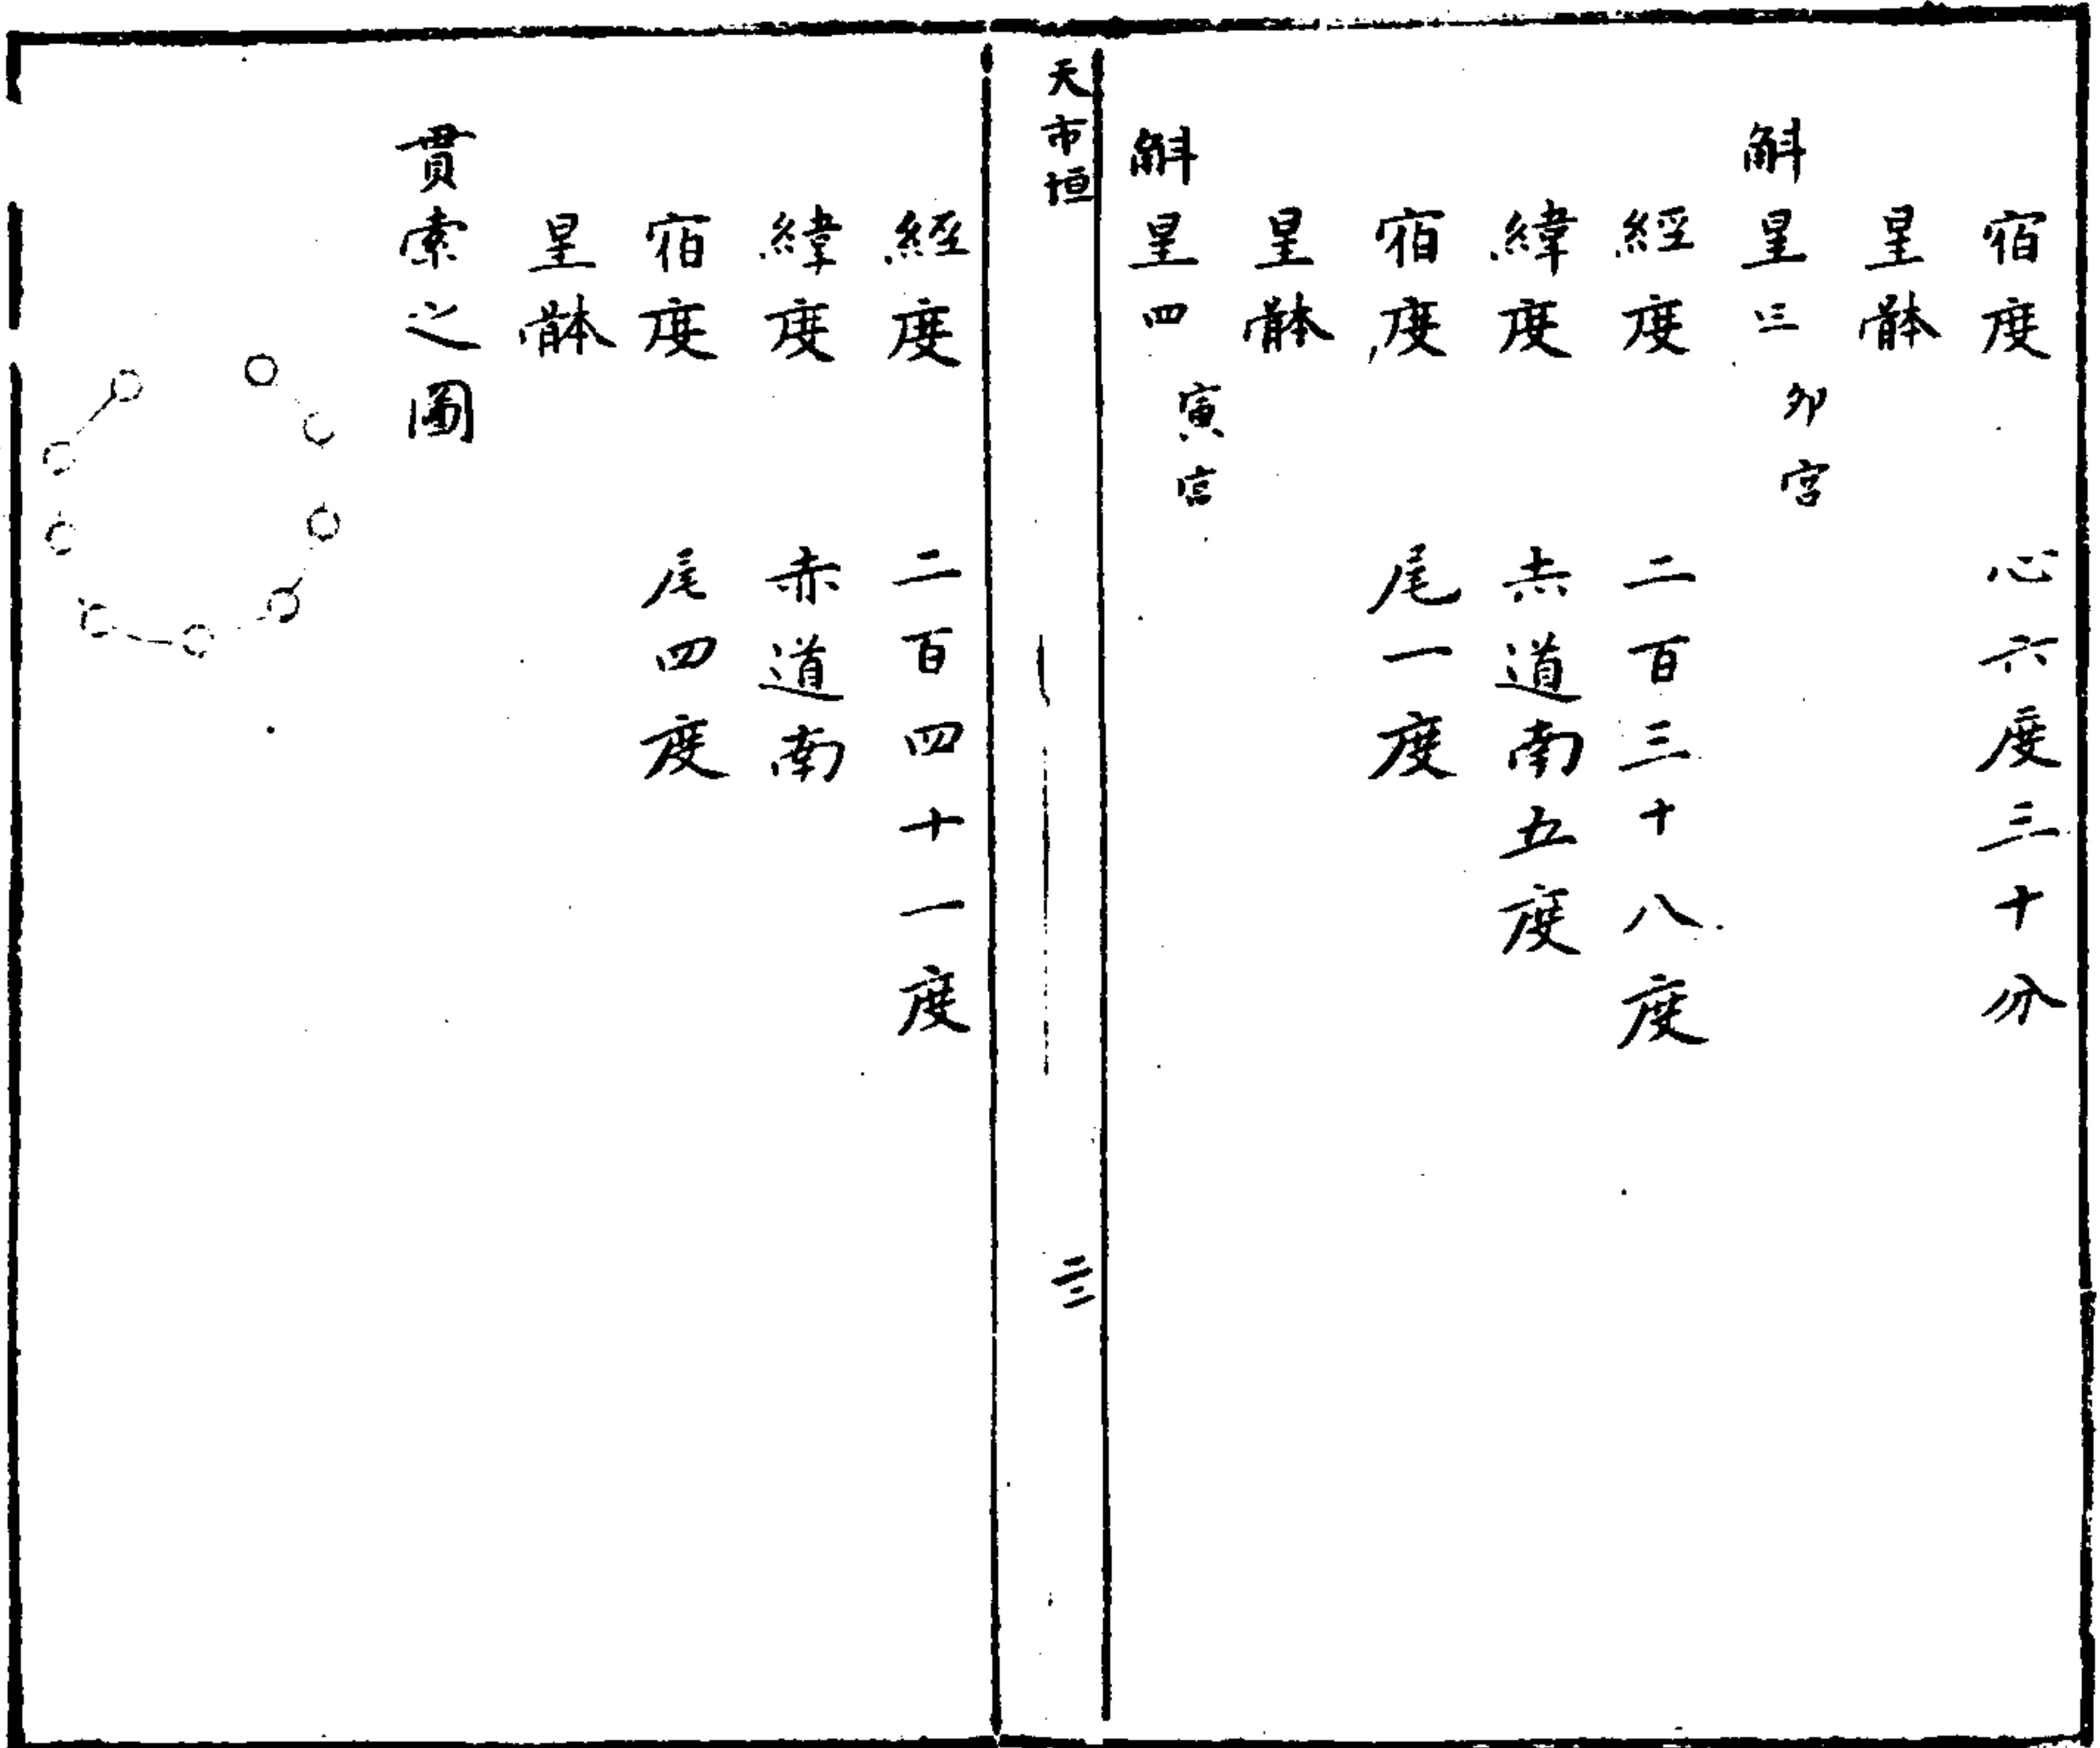 宿度 心六度三十分
星體
斛星三 卯宮
經度 二百三十八度
緯度 赤道南五度
宿度 尾一度
星體
斛星四 寅宮
天市垣 三
經度 二百四十一度
緯度 赤道南
宿度 尾四度
星體
貫索之圖